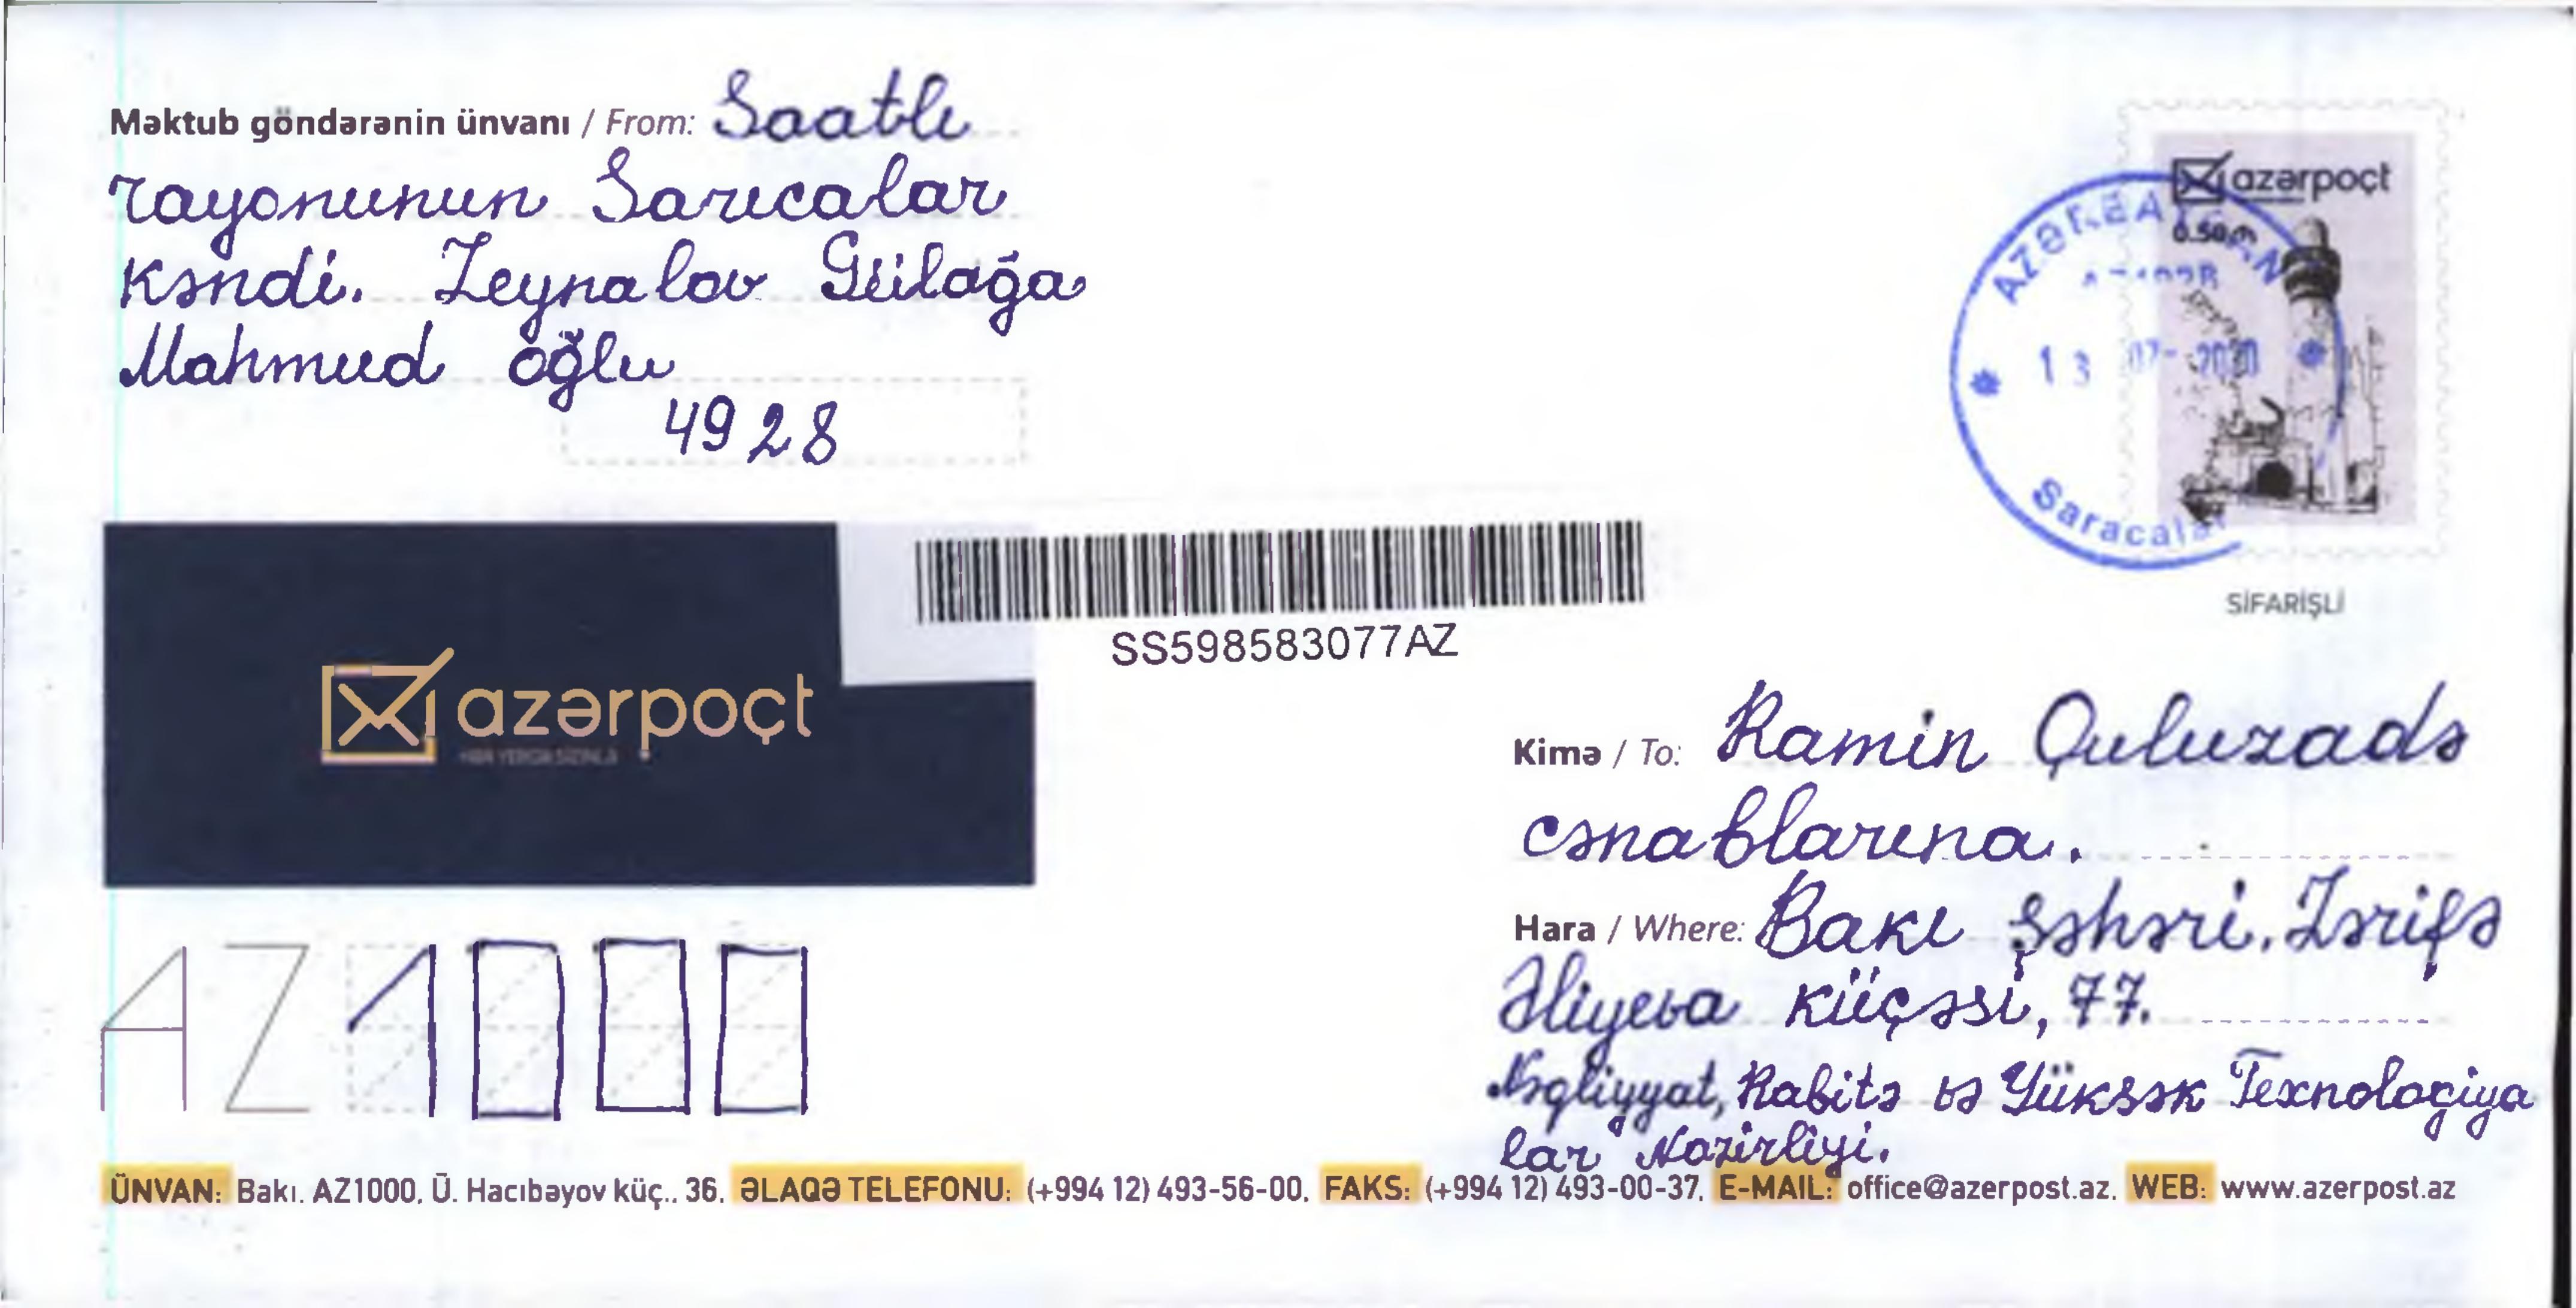 Məktub göndərənin ünvanı / From: Saatlı
rayonunun Sarıcalar
kəndi. Zeynalov Gülağa
Mahmud oğlu
4928
azərpoçt
0.50
AZƏRBAYCAN
13 07 2020
Saracalar
SİFARİŞLİ
SS598583077AZ
azərpoçt
Kimə / To: Ramin Quluzadə
cənablarına.
Hara / Where: Bakı şəhəri, Zərifə
Əliyeva küçəsi, 77.
Nəqliyyat, Rabitə və Yüksək Texnologiya
lar Nazirliyi.
AZ1000
ÜNVAN: Bakı. AZ1000, Ü. Hacıbəyov küç., 36, ƏLAQƏ TELEFONU: (+994 12) 493-56-00, FAKS: (+994 12) 493-00-37, E-MAIL: office@azerpost.az, WEB: www.azerpost.az